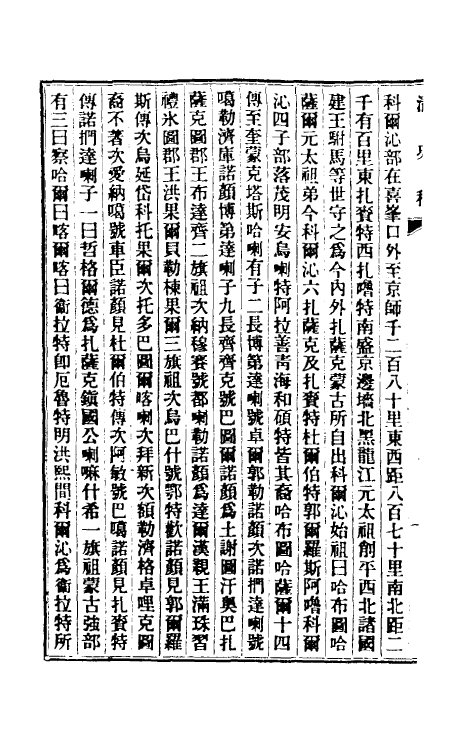 清史稿
科爾沁部在喜峯口外至京師千二百八十里東西距八百七十里南北距二
千有百里東扎賚特西扎嚕特南盛京邊墻北黑龍江元太祖創平西北諸國
建王駙馬等世守之爲今內外扎薩克蒙古所自出科爾沁始祖曰哈布圖哈
薩爾元太祖弟今科爾沁六扎薩克及扎賚特杜爾伯特郭爾羅斯阿嚕科爾
沁四子部落茂明安烏喇特阿拉善靑海和碩特皆其裔哈布圖哈薩爾十四
傳至奎蒙克塔斯哈喇有子二長博第達喇號卓爾郭勒諾顏次諾捫達喇號
噶勒濟庫諾顏博第達喇子九長齊齊克號巴圖爾諾顏爲土謝圖汗奧巴扎
薩克圖郡王布達齊二旗祖次納穆賽號都喇勒諾顏爲達爾漢親王滿珠習
禮氷圖郡王洪果爾貝勒棟果爾三旗祖次烏巴什號鄂特歡諾顏見郭爾羅
斯傳次烏延岱科托果爾次托多巴圖爾喀喇次拜新次額勒濟格卓哩克圖
裔不著次愛納噶號車臣諾顏見杜爾伯特傳次阿敏號巴噶諾顏見扎賚特
傳諾捫達喇子一曰哲格爾德爲扎薩克鎭國公喇嘛什希一旗祖蒙古強部
有三曰察哈爾曰喀爾喀曰衞拉特卽厄魯特明洪熙間科爾沁爲衞拉特所